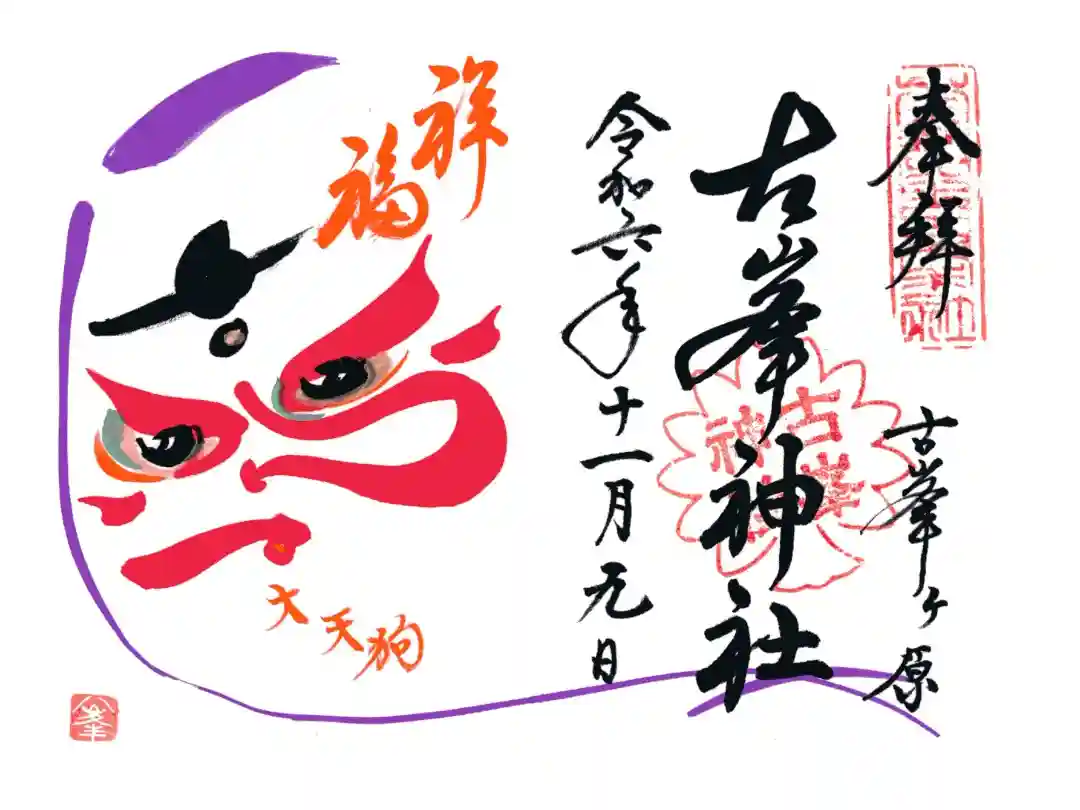 奉拝
古峯ヶ原
古峯神社
令和六年十一月元日
祥福
大天狗
古峯
神
峯